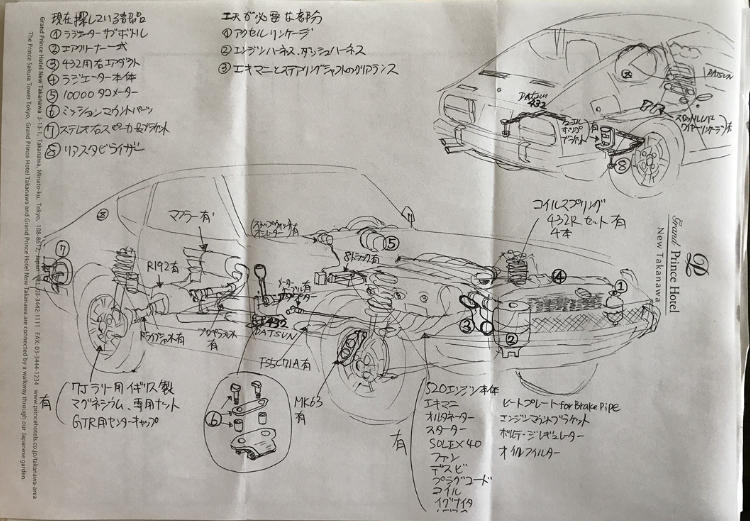 現在探している部品
① ラジエーターサブボトル
② エアクリーナー一式
③ 432用右エアダクト
④ ラジエーター本体
⑤ 10000タコメーター
⑥ ミッションマウントパーツ
⑧ リアスタビライザー
工夫が必要な部分
① アクセルリンケージ
② エンジンハーネス、ダッシュハーネス
③ エキマニとステアリングシャフトのクリアランス
DATSUN
432
DATSUN
⑧
マフラー有
R192有
⑦
⑤
コイルスプリング
432R セット有
4本
④
①
②
③
432
DATSUN
FS5C71A有
MK63
有
⑥
有
TTラリー用イギリス製
マグネシウム、専用ナット
GTR用センターキャップ
有
S20エンジン本体
エキマニ
オルタネーター
スターター
SOLEX40
ファン
デスビ
プラグコード
コイル
イグナイタ
ヒートプレート for Brake Pipe
エンジンマウントブラケット
ボルテージレギュレーター
オイルフィルター
Grand Prince Hotel
New Takanawa
Grand Prince Hotel New Takanawa 3-13-1, Takanawa, Minato-ku, Tokyo, 108-8612, Japan
FAX:03-3444-1234 www.princehotels.co.jp/takanawa-area
The Prince Sakura Tower Tokyo, Grand Prince Hotel Takanawa and Grand Prince Hotel New Takanawa are connected by a walkway through our Japanese garden.